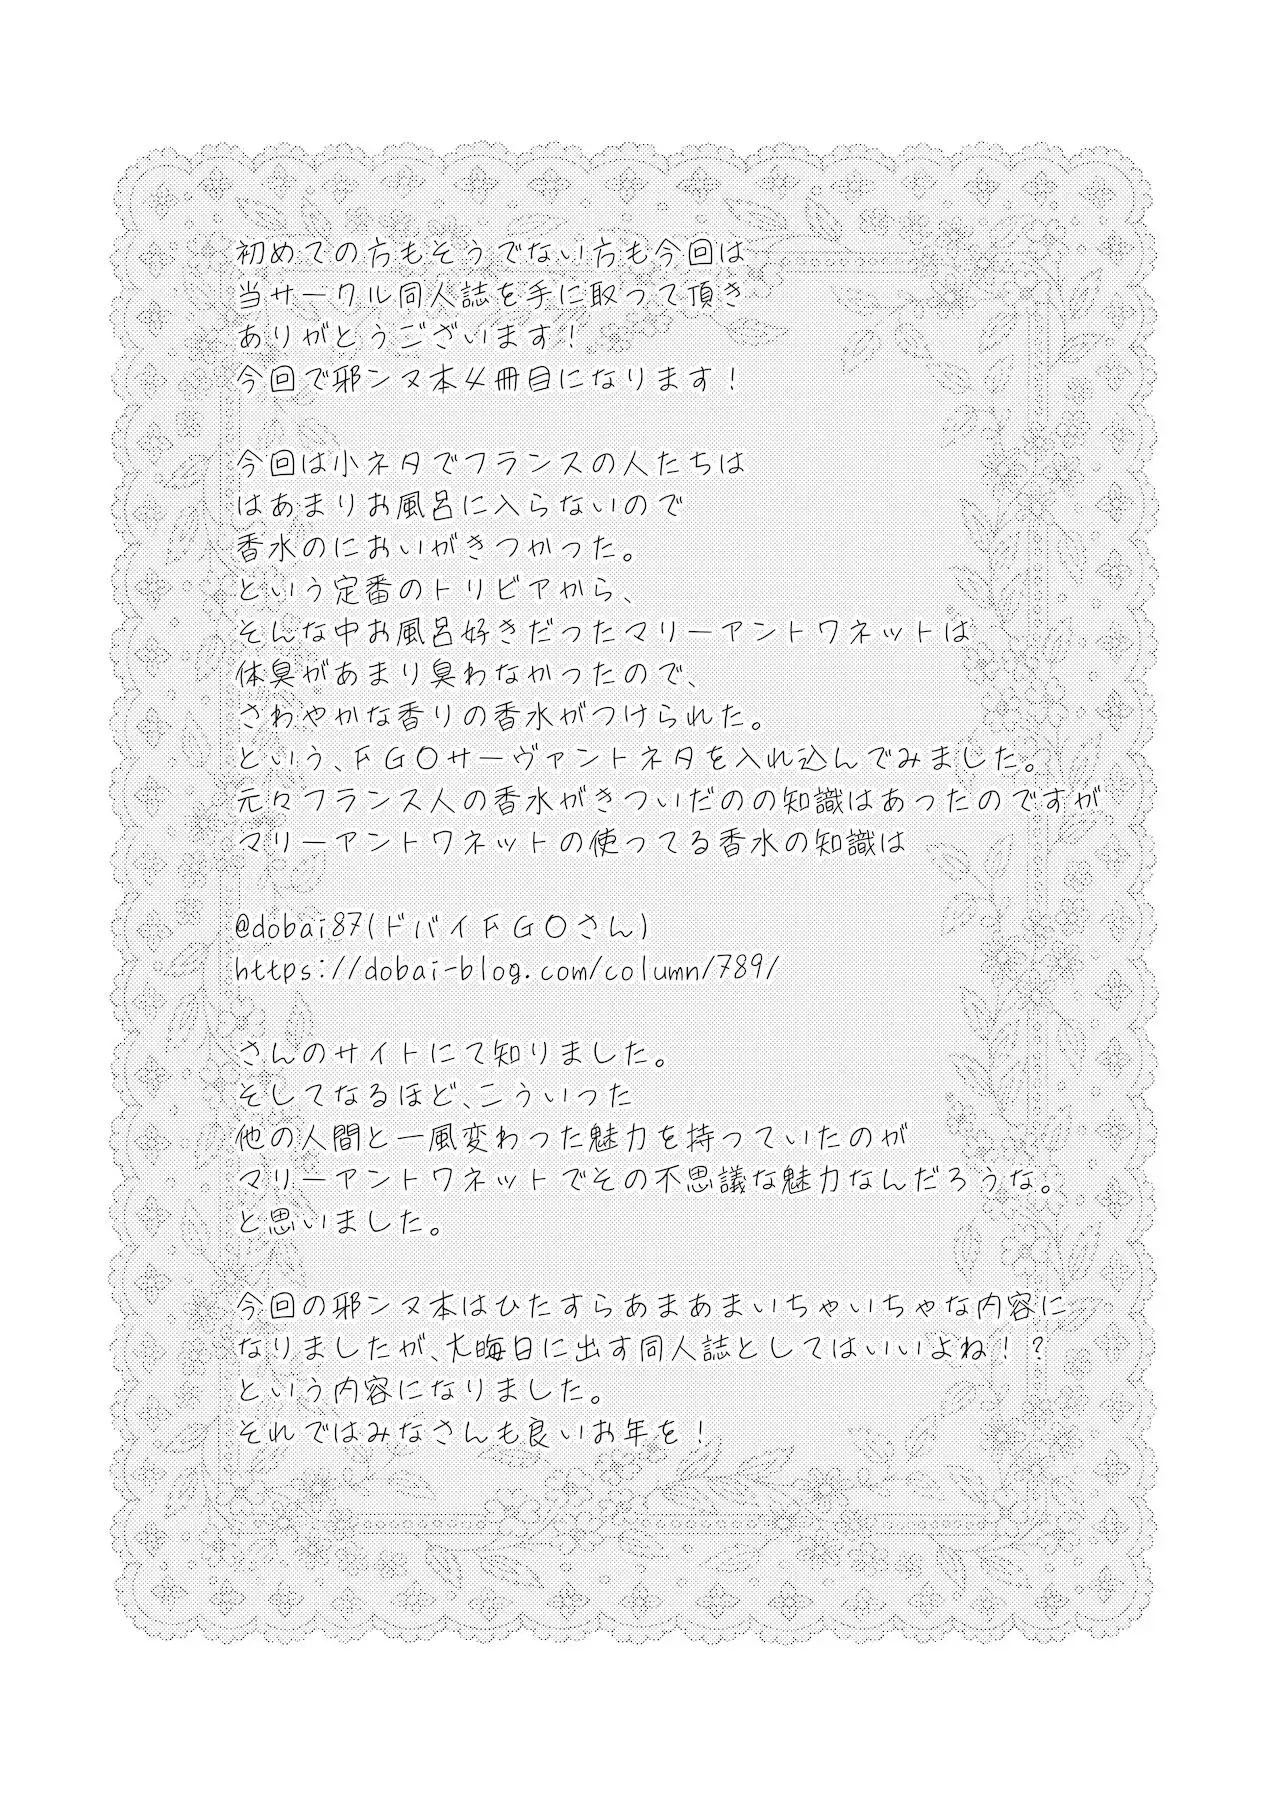 初めての方もそうでない方も今回は
当サークル同人誌を手に取って頂き
ありがとうございます!
今回で邪ンヌ本4冊目になります!
今回は小ネタでフランスの人たちは
はあまりお風呂に入らないので
香水のにおいがきつかった。
という定番のトリビアから、
そんな中お風呂好きだったマリーアントワネットは
体臭があまり臭わなかったので、
さわやかな香りの香水がつけられた。
という、FGOサーヴァントネタを入れ込んでみました。
元々フランス人の香水がきついだのの知識はあったのですが
マリーアントワネットの使ってる香水の知識は
@dobai87(ドバイFGOさん)
https://dobai-blog.com/column/789/
さんのサイトにて知りました。
そしてなるほど、こういった
他の人間と一風変わった魅力を持っていたのが
マリーアントワネットでその不思議な魅力なんだろうな。
と思いました。
今回の邪ンヌ本はひたすらあまあまいちゃいちゃな内容に
なりましたが、大晦日に出す同人誌としてはいいよね!?
という内容になりました。
それではみなさんも良いお年を!